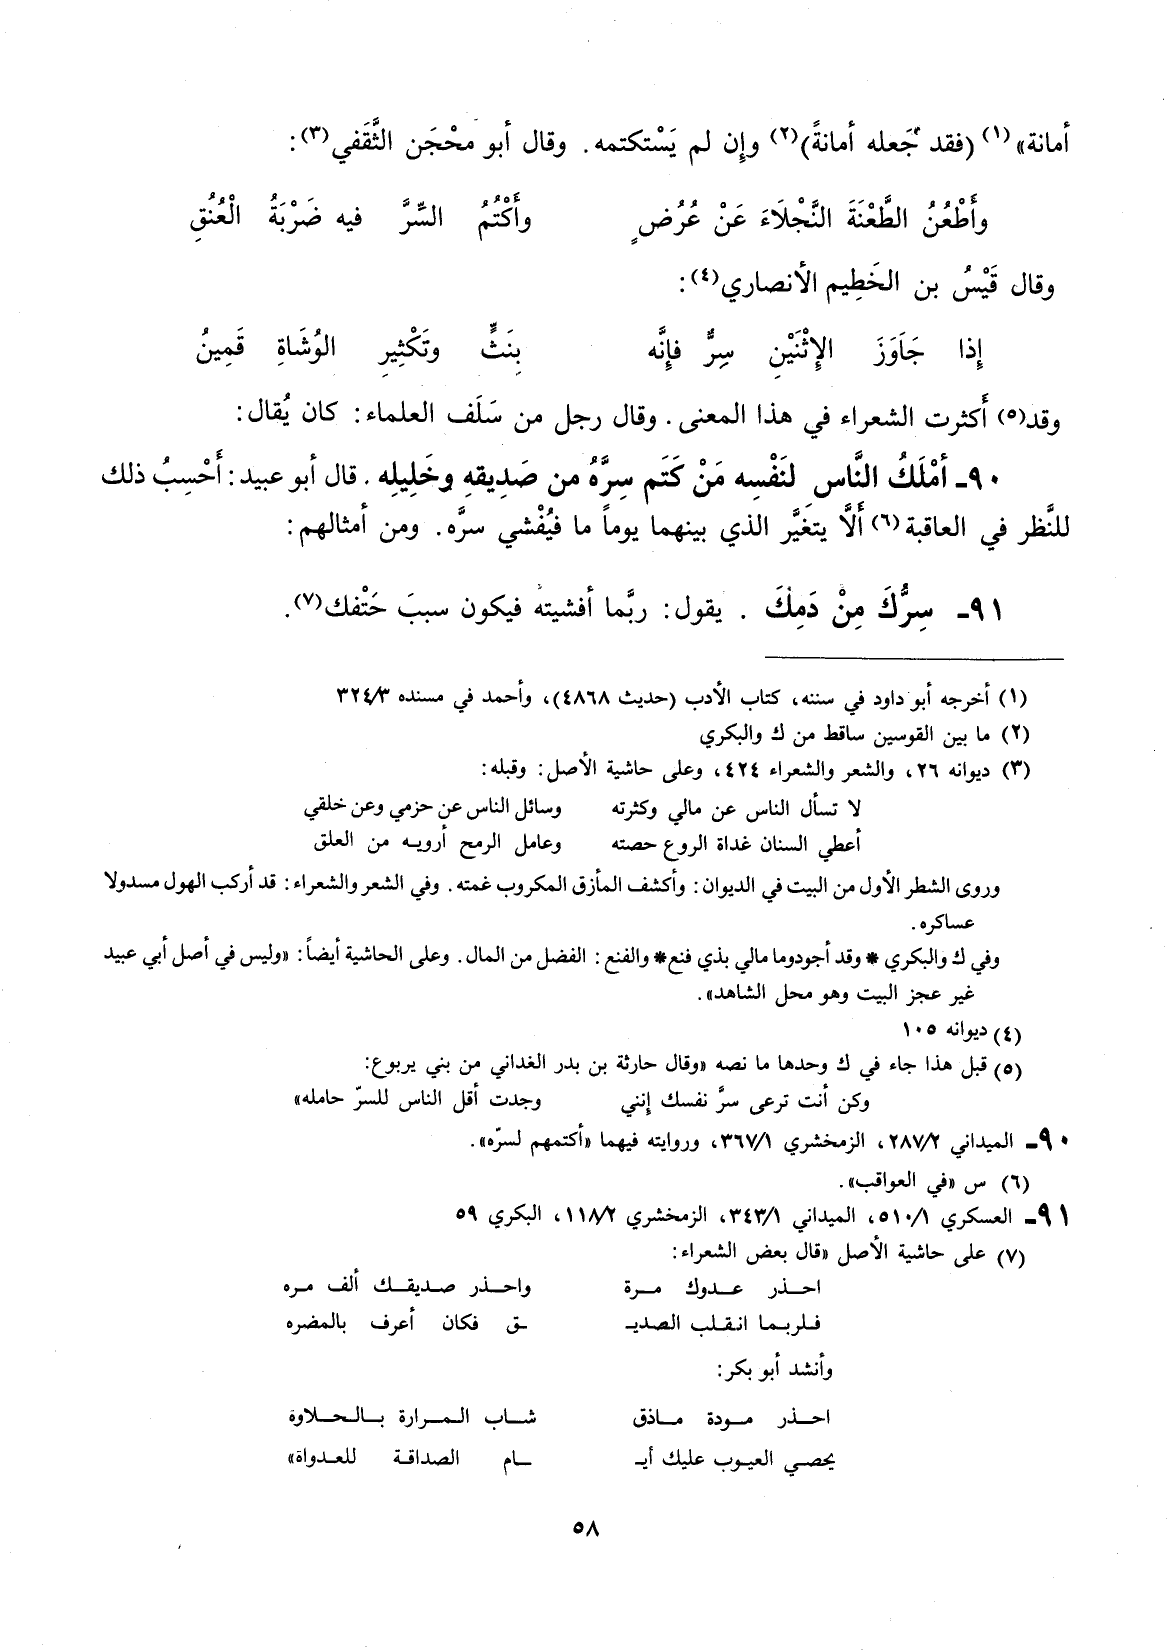 أمانة»(١) (فقد جَعله أمانةً)(٢) وإن لم يَسْتكتمه. وقال أبو محْجَن الثَّقَفي(٣):
وأَطْعُنُ الطَّعْنَةَ النَّجْلَاءَ عَنْ عُرُضٍ وأَكْتُمُ السِّرَّ فيه ضَرْبَةُ الْعُنُقِ
وقال قَيْسُ بن الخَطِيم الأنصاري(٤):
إِذا جَاوَزَ الإِثْنَيْنِ سِرٌّ فإِنَّه بِنَثٍّ وتَكْثِيرِ الوُشَاةِ قَمِينُ
وقد(٥) أَكثرت الشعراء في هذا المعنى. وقال رجل من سَلَف العلماء: كان يُقال:
٩٠ـ أمْلَكُ النَّاس لنَفْسِه مَنْ كَتَم سِرَّهُ من صَدِيقهِ وخَلِيلِه. قال أبو عبيد: أَحْسِبُ ذلك
للنَّظر في العاقبة(٦) أَلَّا يتغيَّر الذي بينهما يوماً ما فيُفْشي سرَّه. ومن أمثالهم:
٩١ـ سِرُّكَ مِنْ دَمِكَ. يقول: ربَّما أفشيته فيكون سببَ حَتْفك(٧).
(١) أخرجه أبو داود في سننه، كتاب الأدب (حديث ٤٨٦٨)، وأحمد في مسنده ٣٢٤/٣
(٢) ما بين القوسين ساقط من ك والبكري
(٣) ديوانه ٢٦، والشعر والشعراء ٤٢٤، وعلى حاشية الأصل: وقبله:
لا تسأل الناس عن مالي وكثرته وسائل الناس عن حزمي وعن خلقي
أعطي السنان غداة الروع حصته وعامل الرمح أرويه من العلق
وروى الشطر الأول من البيت في الديوان: وأكشف المأزق المكروب غمته. وفي الشعر والشعراء: قد أركب الهول مسدولا
عساكره.
وفي ك والبكري * وقد أجودوما مالي بذي فنع* والفنع: الفضل من المال. وعلى الحاشية أيضاً: «وليس في أصل أبي عبيد
غير عجز البيت وهو محل الشاهد».
(٤) ديوانه ١٠٥
(٥) قبل هذا جاء في ك وحدها ما نصه «وقال حارثة بن بدر الغداني من بني يربوع:
وكن أنت ترعى سرَّ نفسك إنني وجدت أقل الناس للسرّ حامله»
٩٠ـ الميداني ٢٨٧/٢، الزمخشري ٣٦٧/١، وروايته فيهما «أكتمهم لسرّه».
(٦) س «في العواقب».
٩١ـ العسكري ٥١٠/١، الميداني ٣٤٣/١، الزمخشري ١١٨/٢، البكري ٥٩
(٧) على حاشية الأصل «قال بعض الشعراء:
احـذر عـدوك مـرة واحـذر صـديقـك ألف مـره
فـلربـما انـقـلب الصديـ ـق فكان أعرف بالمضره
وأنشد أبو بكر:
احـذر مـودة مـاذق شـاب المـرارة بـالحـلاوة
يحصي العيوب عليك أيـ ـام الصداقة للعدواة»
٥٨